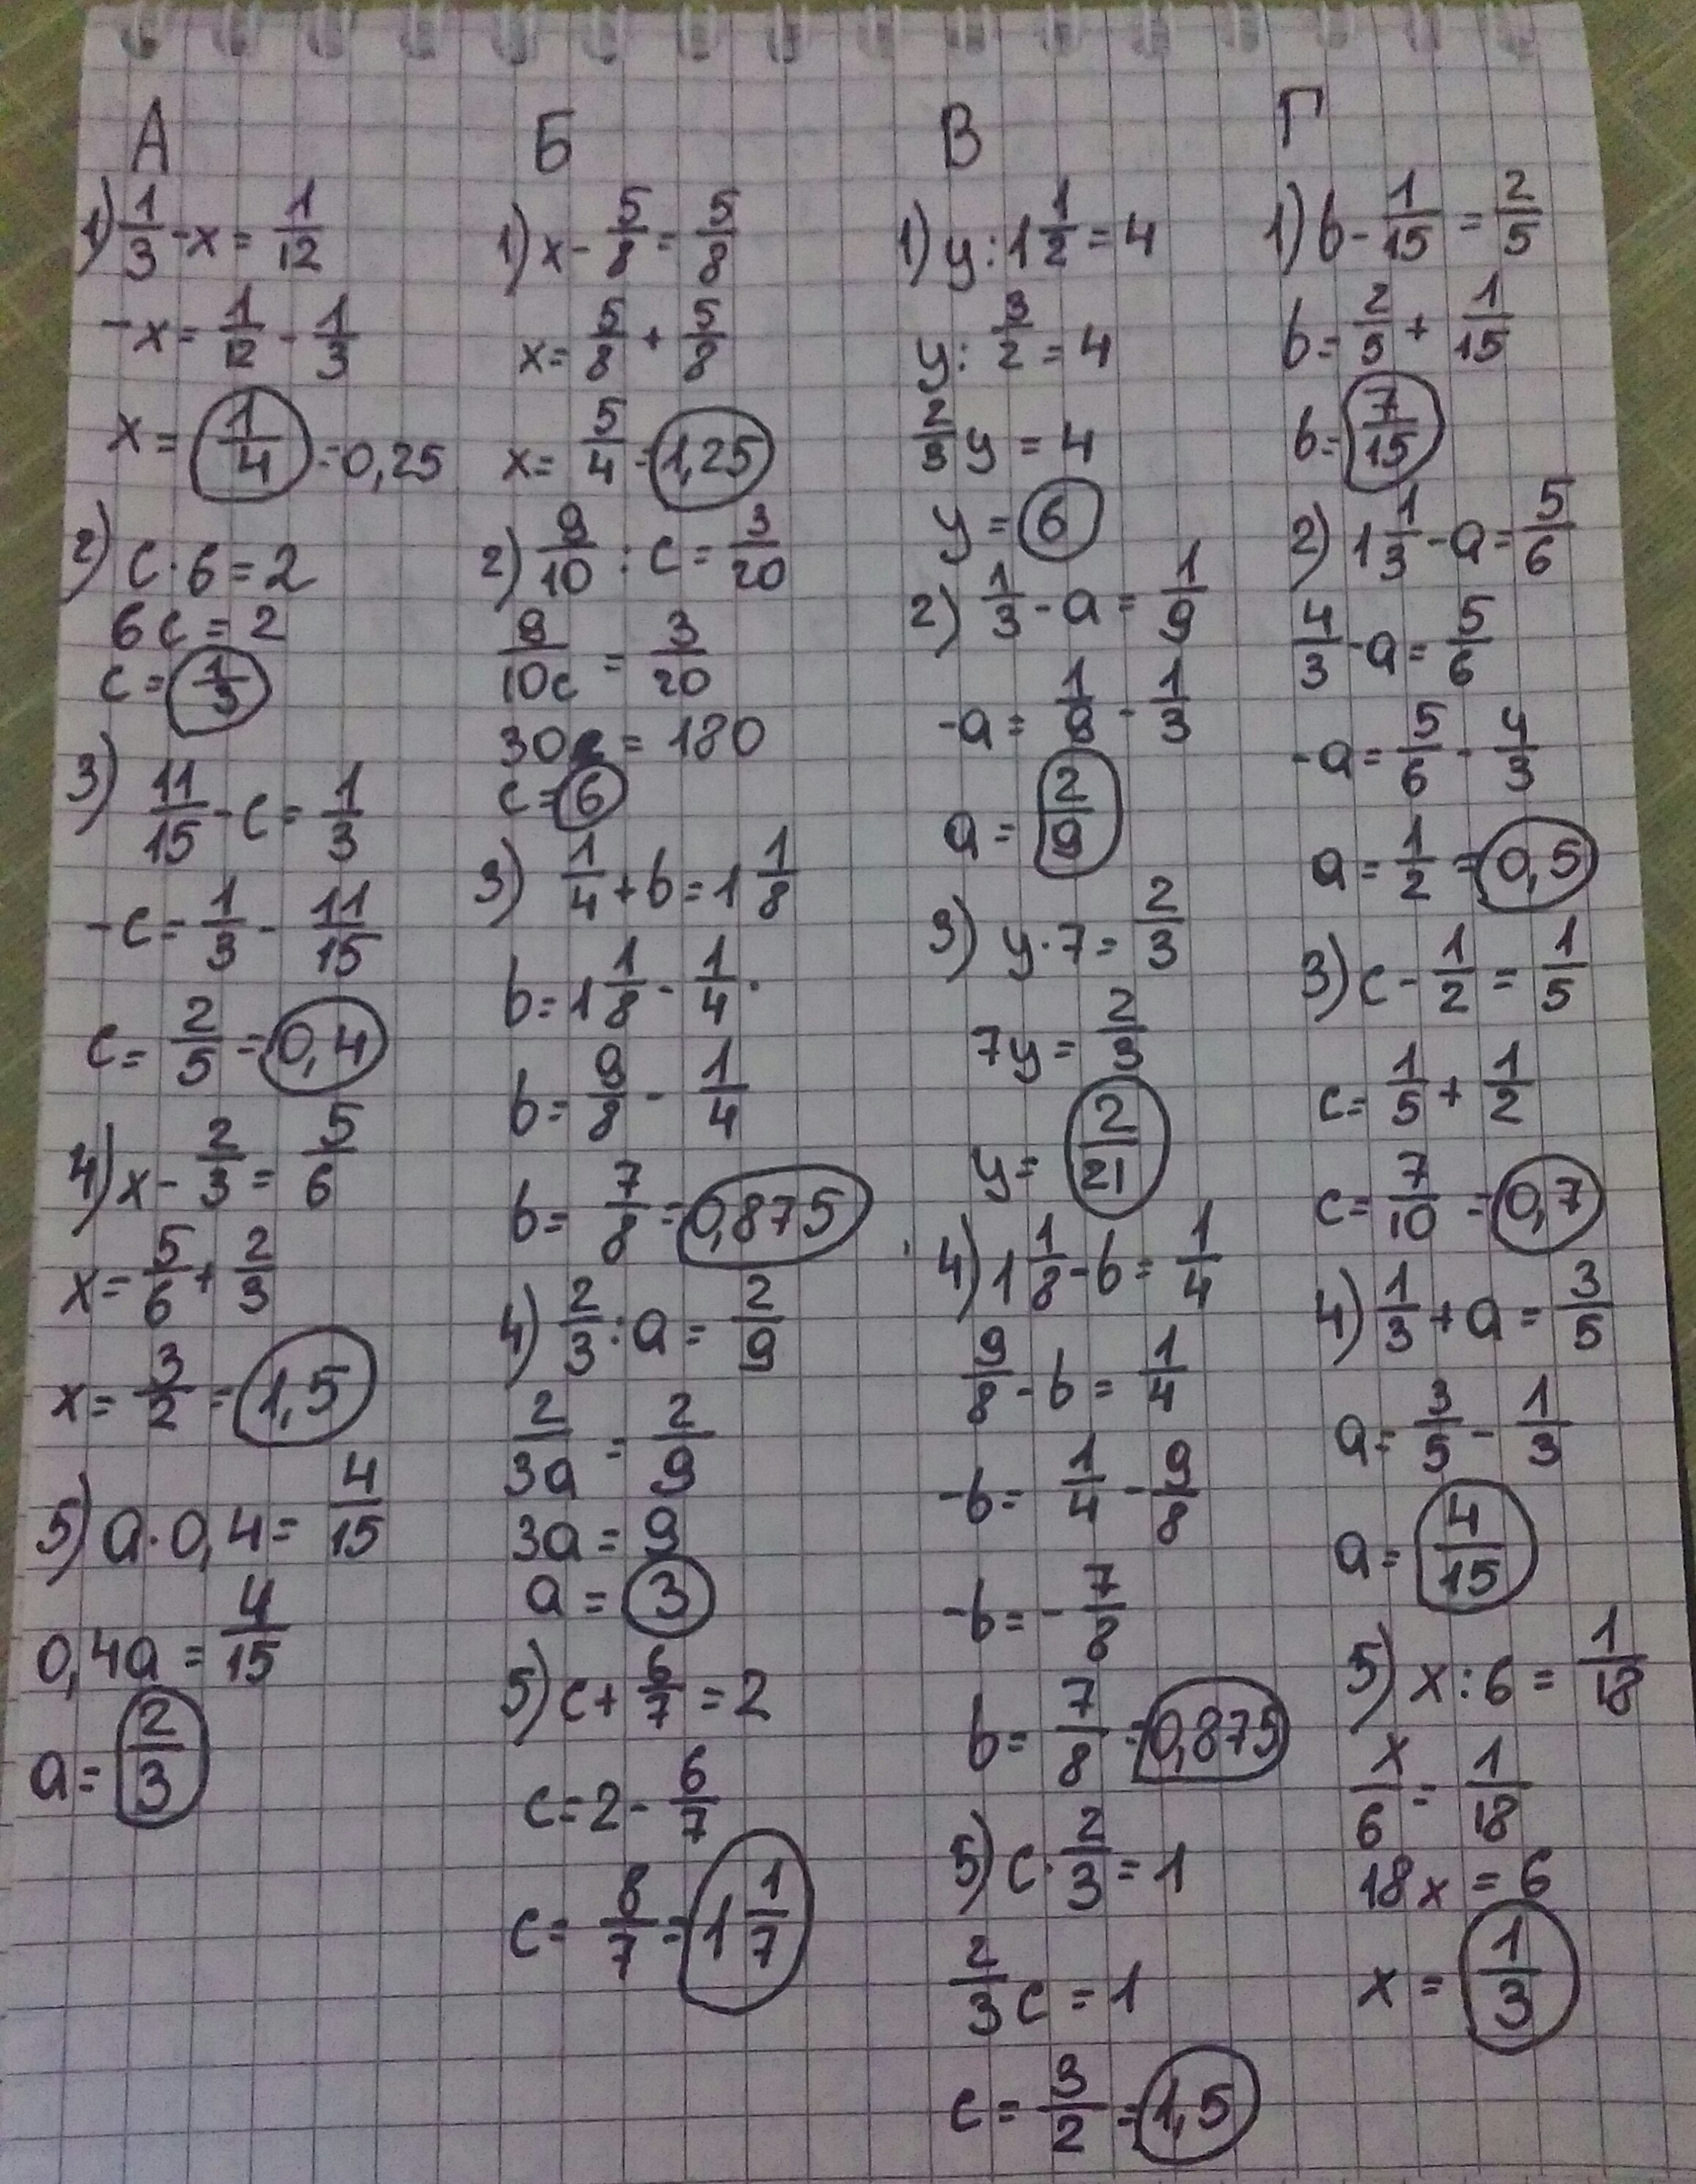 А
1) 1/3 - x = 1/12
-x = 1/12 - 1/3
x = 1/4 = 0,25
2) c · 6 = 2
6c = 2
c = 1/3
3) 11/15 - c = 1/3
-c = 1/3 - 11/15
c = 2/5 = 0,4
4) x - 2/3 = 5/6
x = 5/6 + 2/3
x = 3/2 = 1,5
5) a · 0,4 = 4/15
0,4a = 4/15
a = 2/3
Б
1) x - 5/8 = 5/8
x = 5/8 + 5/8
x = 5/4 = 1,25
2) 9/10 : c = 3/20
9/10c = 3/20
30c = 180
c = 6
3) 1/4 + b = 1 1/8
b = 1 1/8 - 1/4.
b = 9/8 - 1/4
b = 7/8 = 0,875
4) 2/3 : a = 2/9
2/3a = 2/9
3a = 9
a = 3
5) c + 6/7 = 2
c = 2 - 6/7
c = 8/7 = 1 1/7
В
1) y : 1 1/2 = 4
y : 3/2 = 4
2/3 y = 4
y = 6
2) 1/3 - a = 1/9
-a = 1/9 - 1/3
a = 2/9
3) y · 7 = 2/3
7y = 2/3
y = 2/21
4) 1 1/8 - b = 1/4
9/8 - b = 1/4
-b = 1/4 - 9/8
-b = - 7/8
b = 7/8 = 0,875
5) c · 2/3 = 1
2/3 c = 1
c = 3/2 = 1,5
Г
1) b - 1/15 = 2/5
b = 2/5 + 1/15
b = 7/15
2) 1 1/3 - a = 5/6
4/3 - a = 5/6
-a = 5/6 - 4/3
a = 1/2 = 0,5
3) c - 1/2 = 1/5
c = 1/5 + 1/2
c = 7/10 = 0,7
4) 1/3 + a = 3/5
a = 3/5 - 1/3
a = 4/15
5) x : 6 = 1/18
x/6 = 1/18
18x = 6
x = 1/3